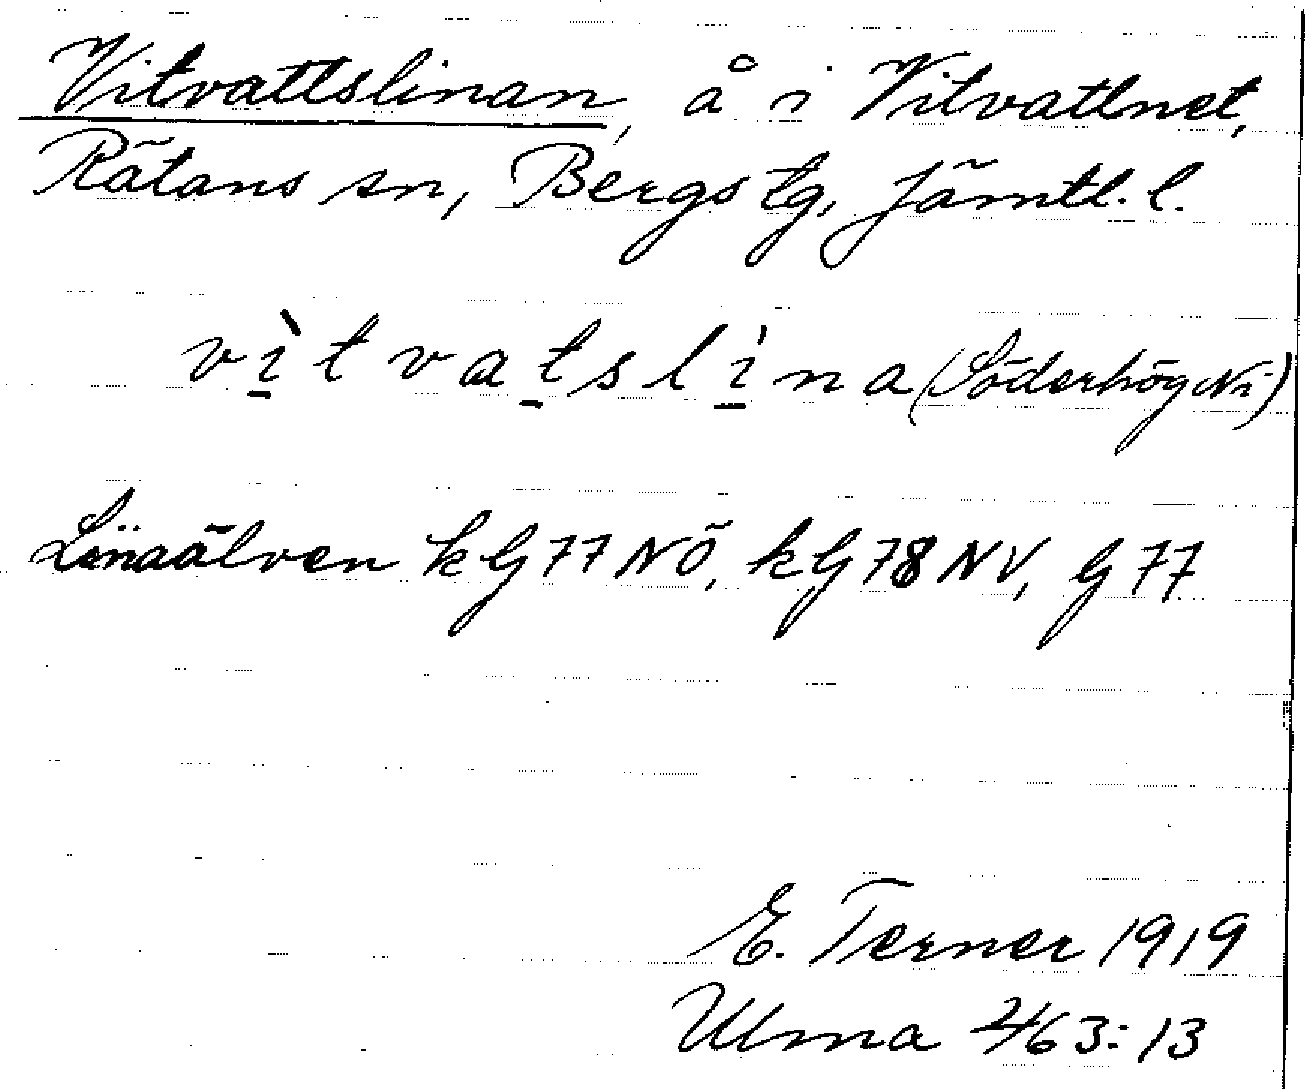 Vitvattslinan, å i Vitvattnet,
Rätans sn, Bergs tg, Jämtl. l.
vì̱tvaṯslì̱na (Söderhög Ni)
Lönaälven kG77NÖ, kG78NV, G77
E. Terner 1919
Ulma 463:13